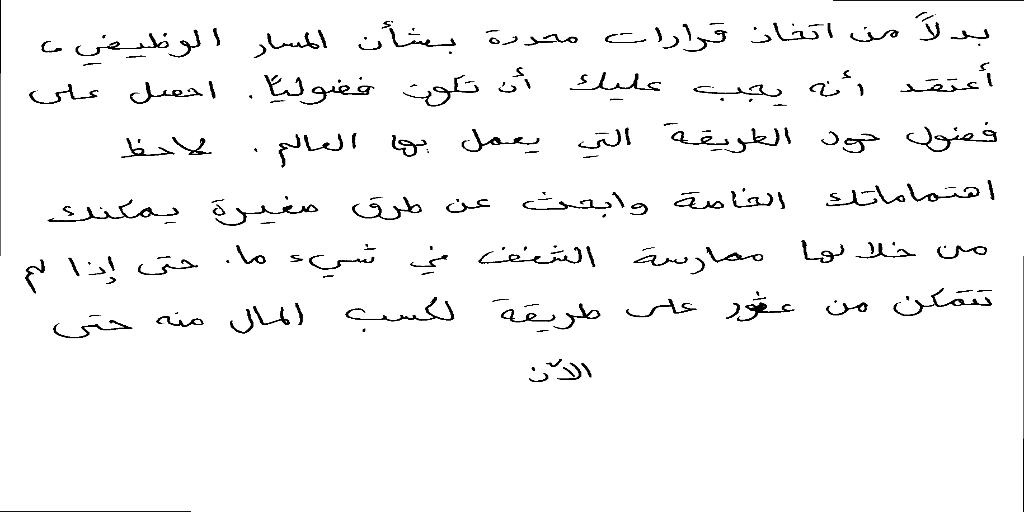 بدلاً من اتخاذ قرارات محددة بشأن المسار الوظيفي،
أعتقد أنه يجب عليك أن تكون فضوليًا. احصل على
فضول حول الطريقة التي يعمل بها العالم. لاحظ
اهتماماتك الخاصة وابحث عن طرق صغيرة يمكنك
من خلالها ممارسة الشغف في شيء ما. حتى إذا لم
تتمكن من عثور على طريقة لكسب المال منه حتى
الآن